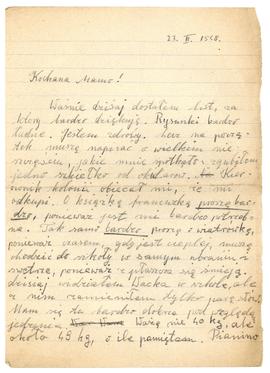 23. II. 1958.
Kochana Mamo!
Właśnie dzisiaj dostałem list, za
który bardzo dziękuję. Rysunki bardzo
ładne. Jestem zdrowy. Lecz na począ-
tek muszę napisać o wielkiem nie
szczęsciu, jakie mnie spotkało: zgubiłem
jedno szkiełko od okularów. Kier-
ownik kolonii obiecał mi, że mi
odkupi. O książkę francuską proszę bar-
dzo, ponieważ jest mi bardzo potrzeb-
na. Tak samo bardzo proszę o wiatrówkę,
ponieważ czasem, gdy jest ciepło, muszę
chodzić do szkoły w samym ubraniu i
swetrze, ponieważ z się śmieją.
dzisiaj widziałem Wacka w szkole, ale
z nim zamieniłem tylko parę słów.
Mam się tu bardzo dobrze pod względem
jedzenia. Ważę nie 40 kg, ale
około 45 kg, o ile pamiętam. Pianino